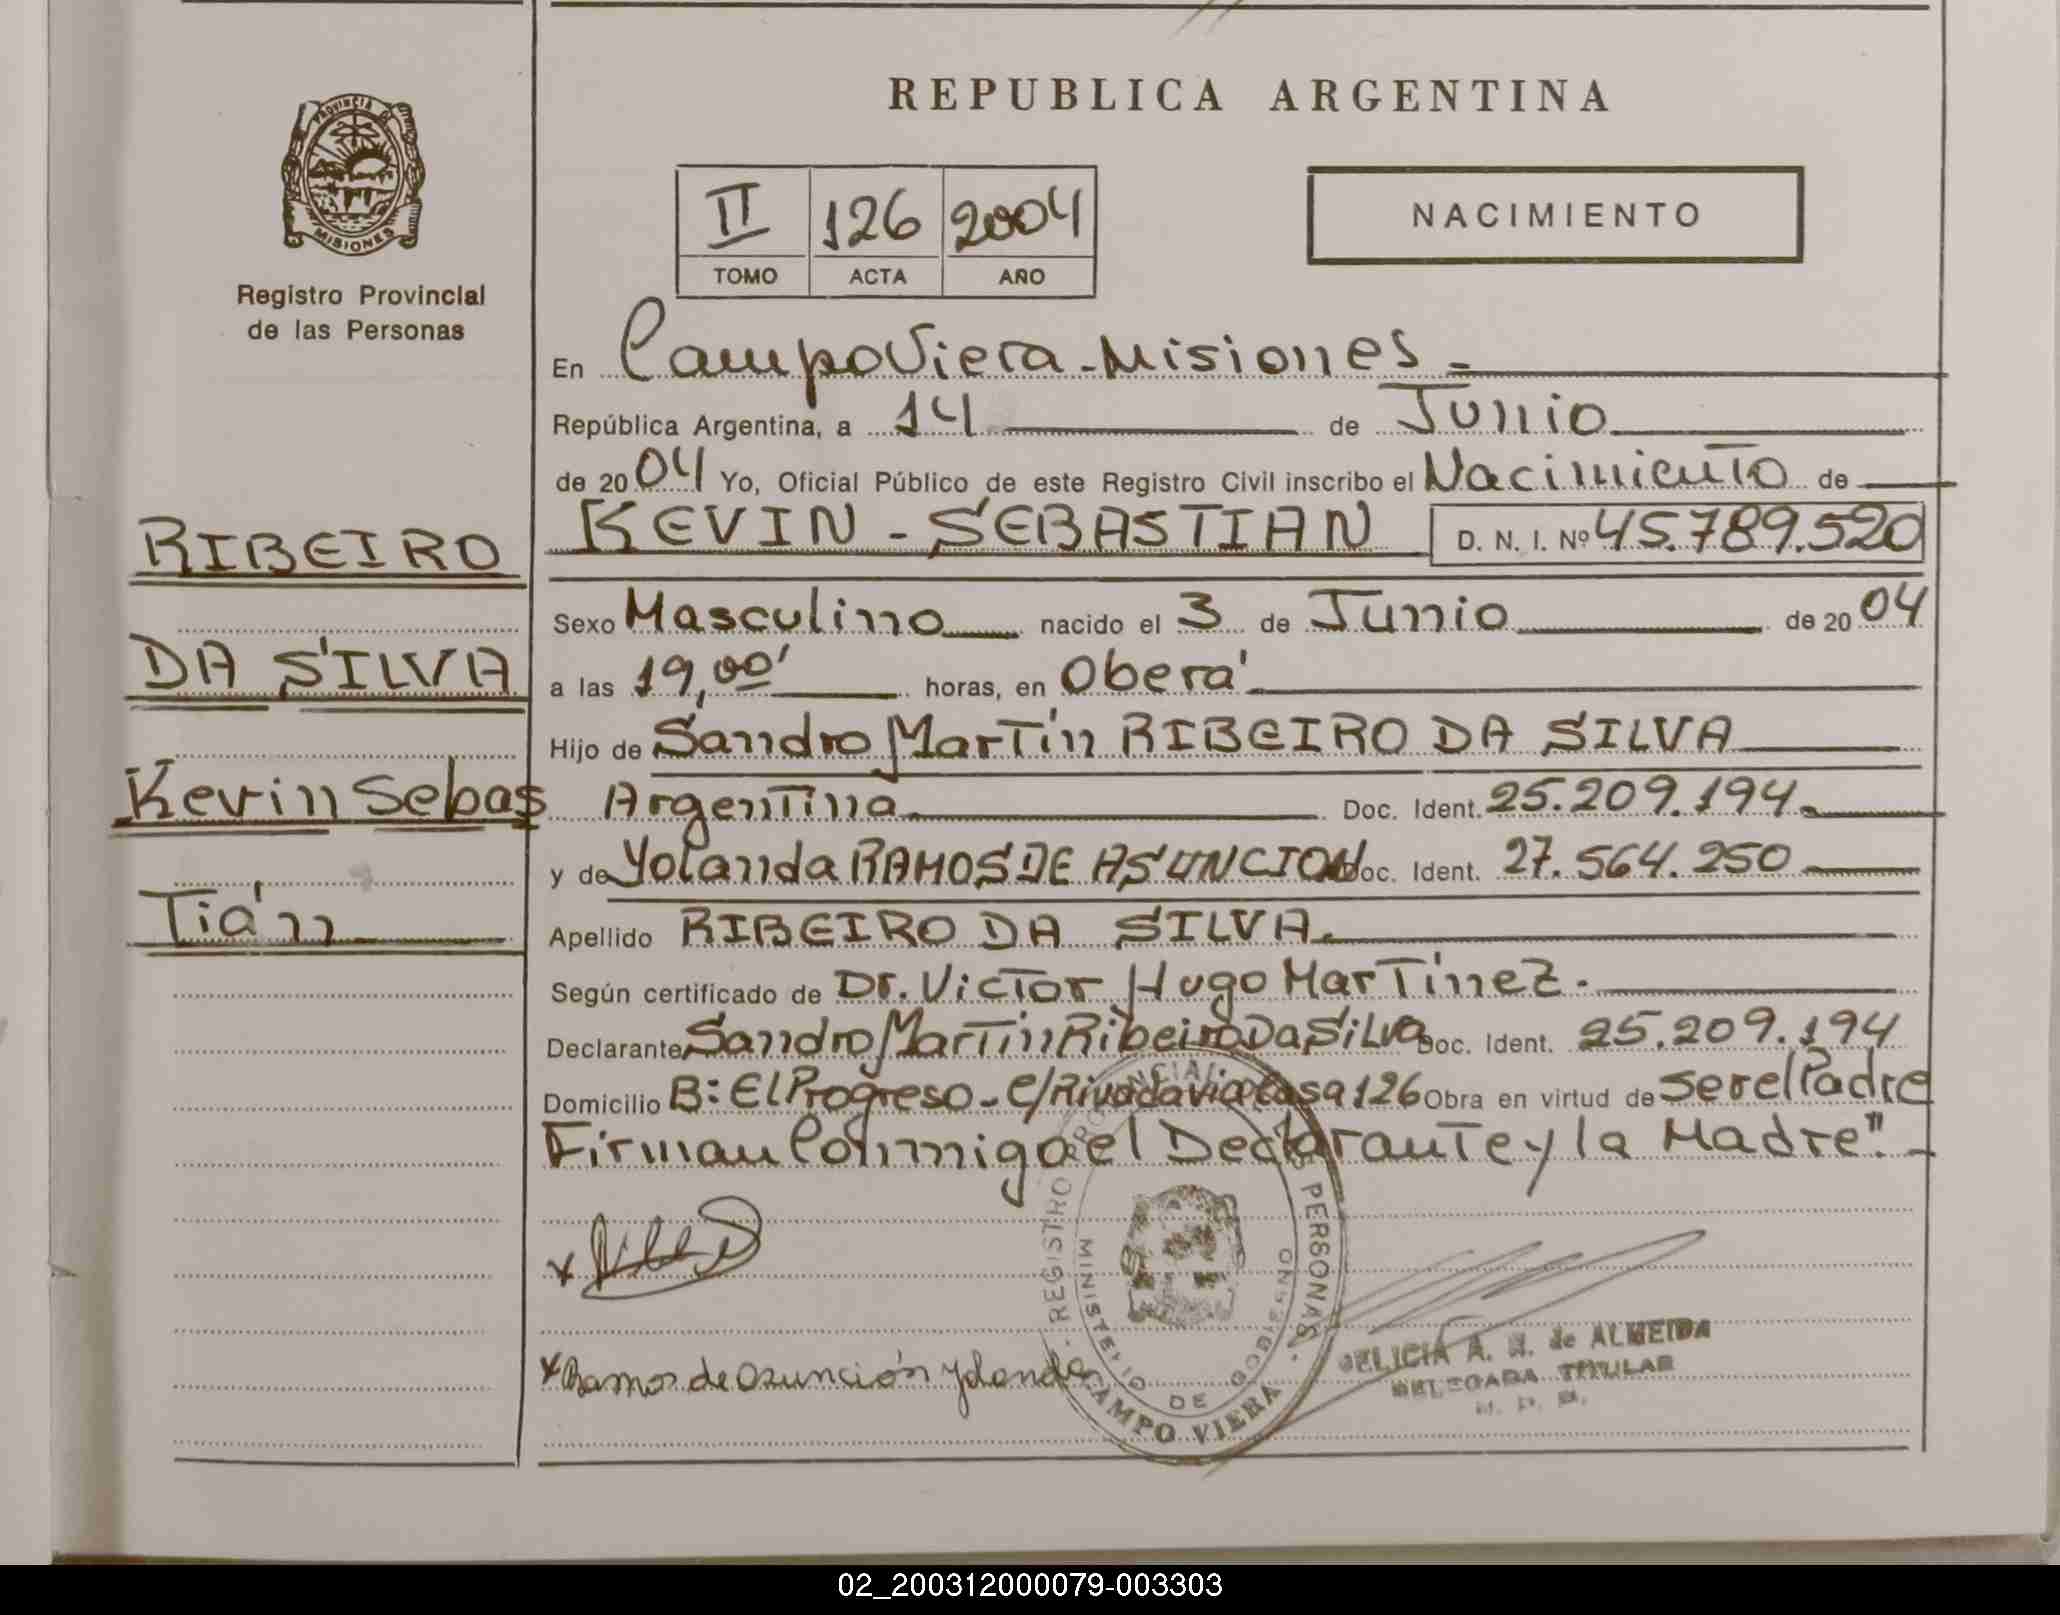 REPUBLICA ARGENTINA
PROVINCIA DE
MISIONES
Registro Provincial
de las Personas
II 126 2004
TOMO ACTA AÑO
NACIMIENTO
En Campo Viera - Misiones =
República Argentina, a 14 de Junio
de 2004 Yo, Oficial Público de este Registro Civil inscribo el Nacimiento de
KEVIN - SEBASTIAN D. N. I. Nº 45.789.520
RIBEIRO
DA SILVA
Kevin Sebas
Tián
Sexo Masculino nacido el 3 de Junio de 2004
a las 19,00' horas, en Oberá
Hijo de Sandro Martín RIBEIRO DA SILVA
Argentina Doc. Ident. 25.209.194.
y de Yolanda RAMOS DE ASUNCION Doc. Ident. 27.564.250
Apellido RIBEIRO DA SILVA.
Según certificado de Dr. Victor Hugo Martinez.
Declarante Sandro Martin Ribeiro Da Silva Doc. Ident. 25.209.194
Domicilio B: El Progreso - C/Rivadavia Casa 126 Obra en virtud de ser el Padre
Firman Conmigo el Declarante y la Madre". -
x
x Ramos de Asunción Yolanda
REGISTRO PROVINCIAL DE LAS PERSONAS
MINISTERIO DE GOBIERNO
CAMPO VIERA
FELICIA A. N. de ALMEIDA
DELEGADA TITULAR
02_200312000079-003303